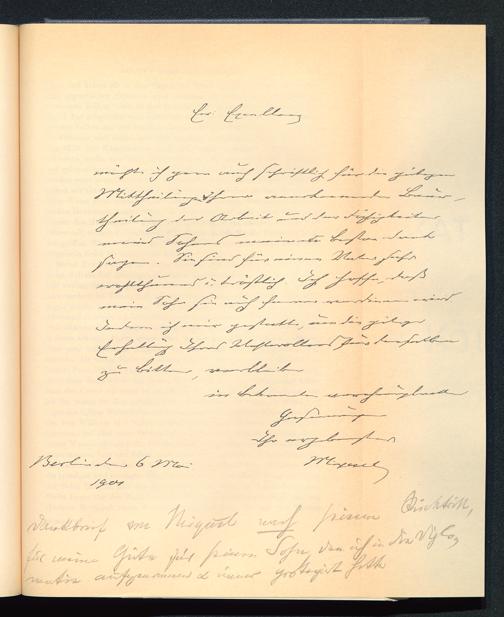 Ew. Excellenz
möchte ich gern auch schriftlich für die gütigen
Mittheilung Ihrer anerkennenden Beur-
theilung der Arbeit und der Fähigkeiten
meines Sohnes meinen besten Dank
sagen. Sie sind für einen Vater sehr
wohlthuend u. tröstlich. Ich hoffe, daß
mein Sohn sie auch ferner verdienen wird
Indem ich mir gestatte, um die gütige
Erhaltung Ihres Wohlwollens für denselben
zu bitten, verbleibe
in bekannter vorzüglicher
Gesinnung
Ihr ergebenster
Miquel
Berlin den 6 Mai
1901
Dankbrief von Miquel nach seinem Rücktritt,
für meine Güte für seinen Sohn, den ich in den Diplo
matie aufgenommen u immer protegirt hatte